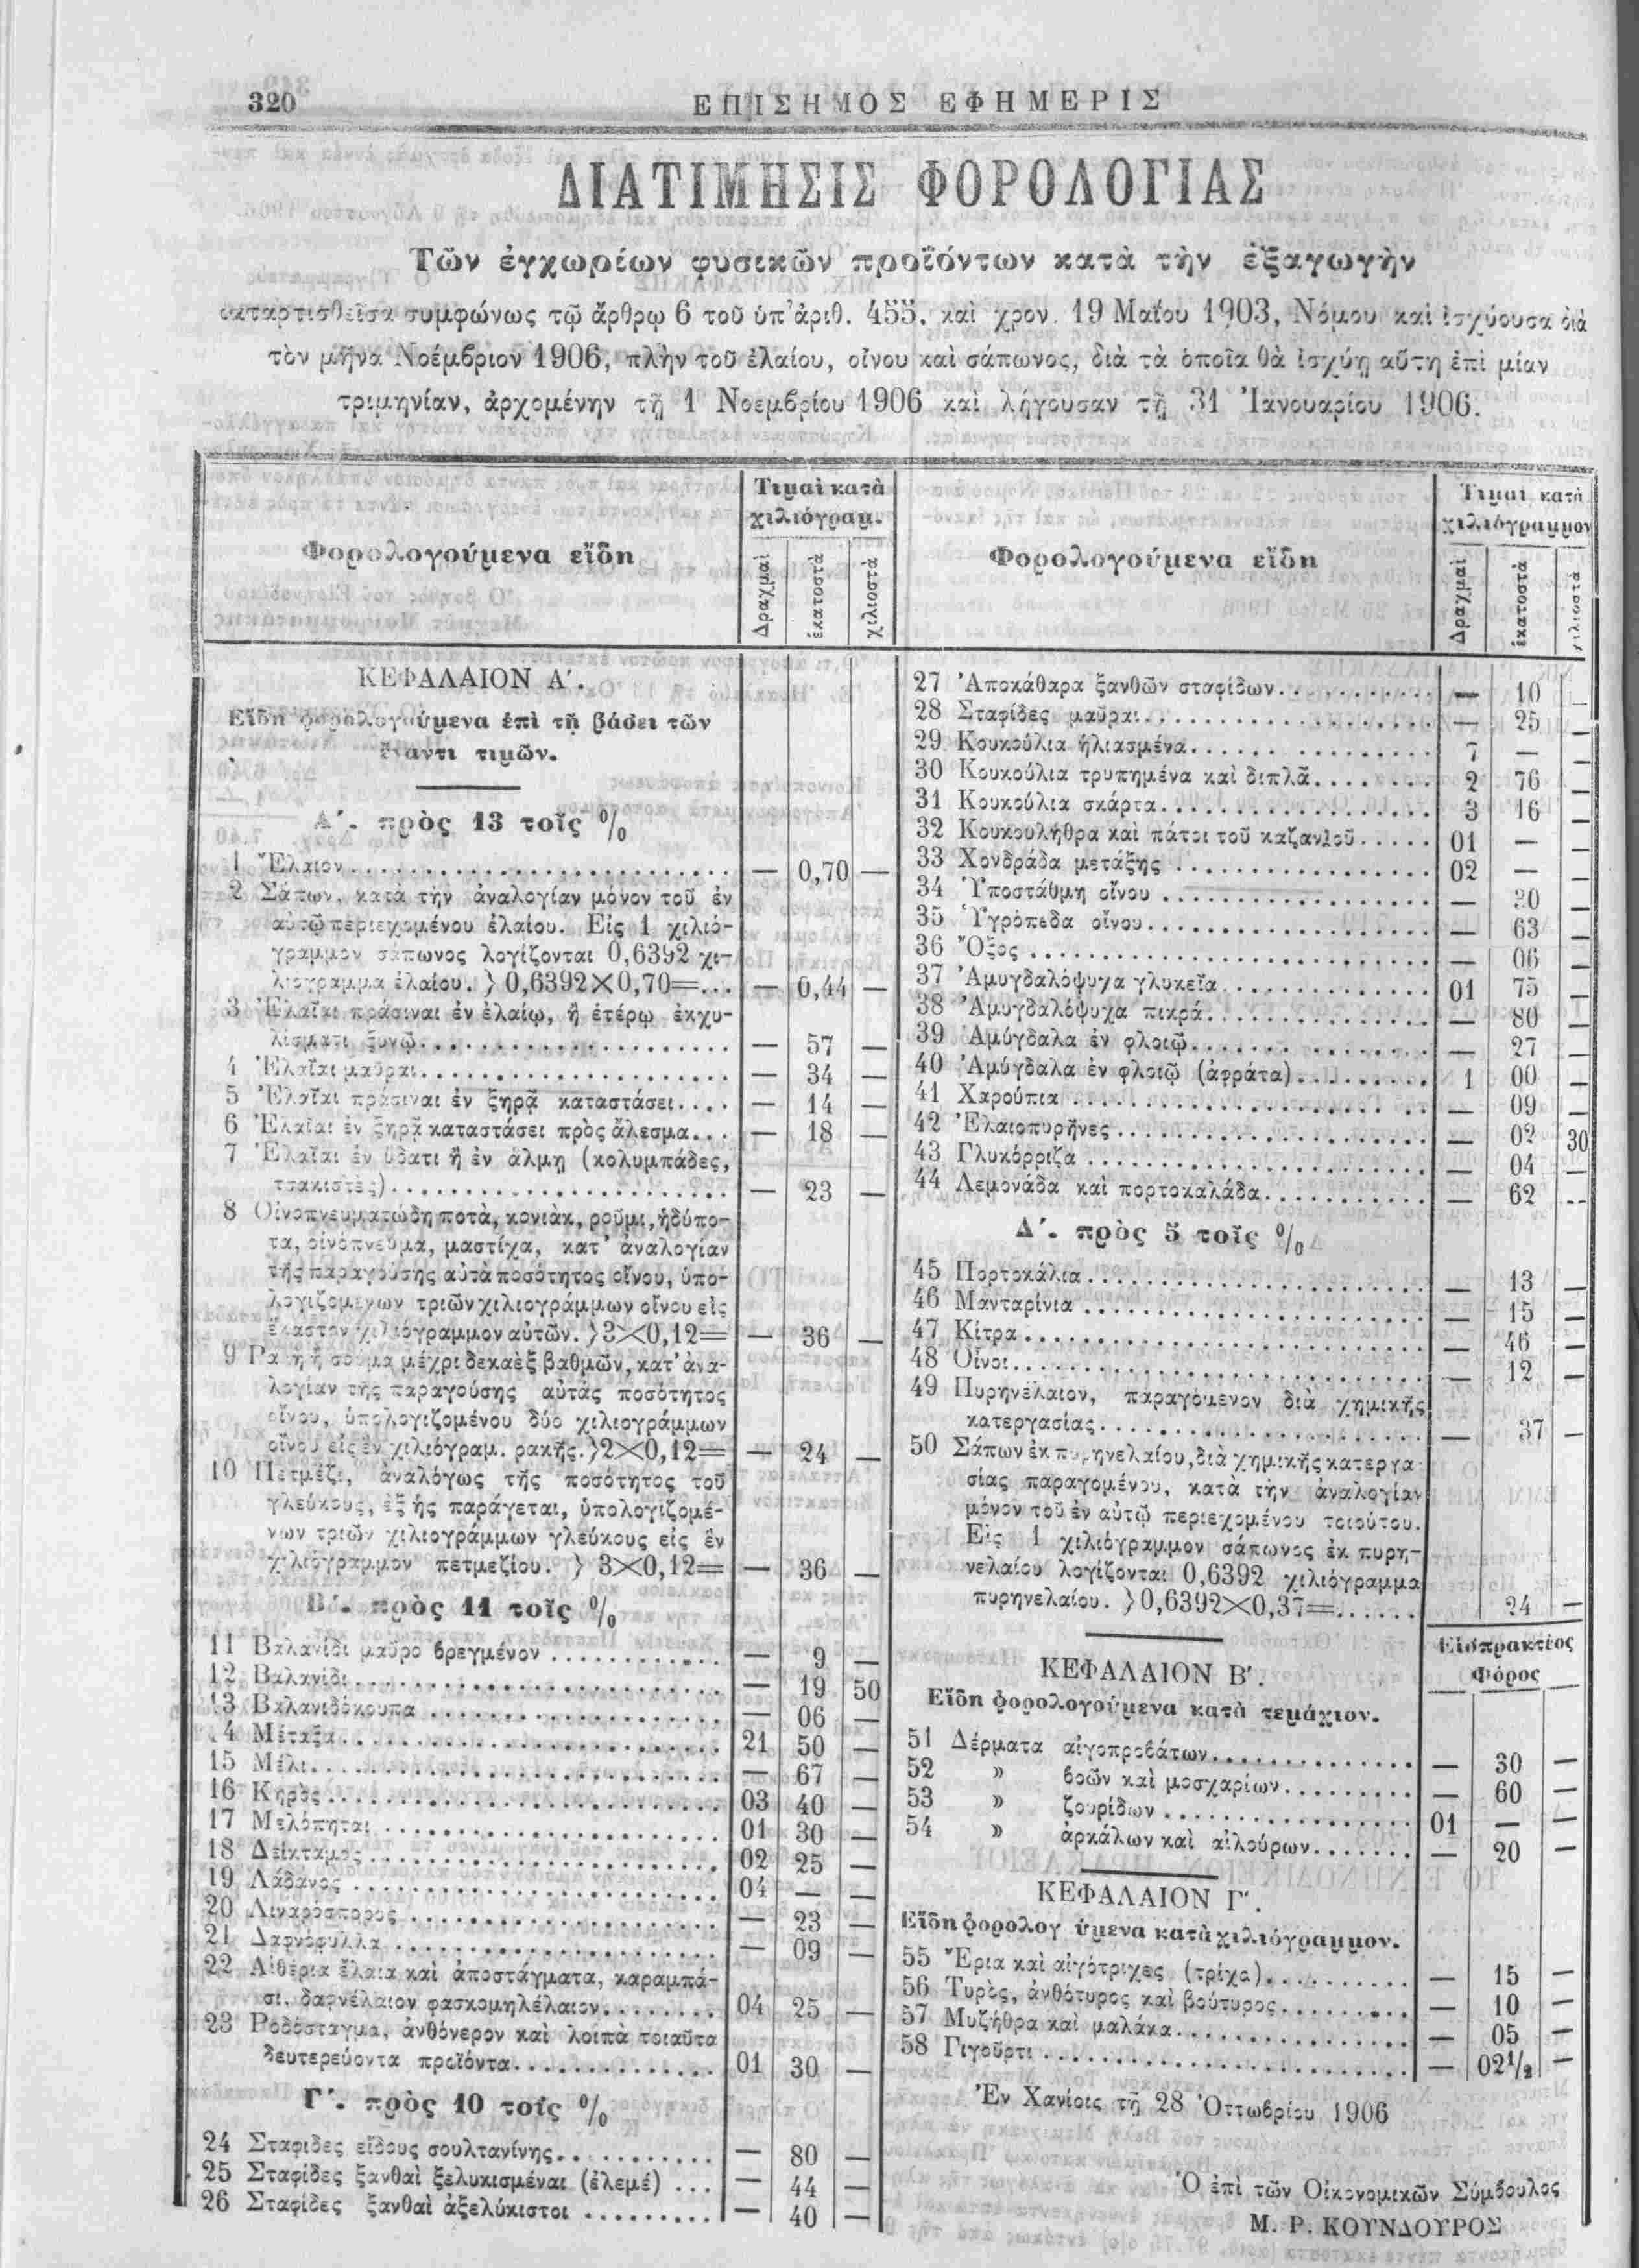 320
ΕΠΙΣΗΜΟΣ ΕΦΗΜΕΡΙΣ
ΔΙΑΤΙΜΗΣΙΣ ΦΟΡΟΛΟΓΙΑΣ
Τῶν ἐγχωρίων φυσικῶν προϊόντων κατὰ τὴν ἐξαγωγὴν
καταρτισθεῖσα συμφώνως τῷ ἄρθρῳ 6 τοῦ ὑπ' ἀριθ. 455. καὶ χρον. 19 Μαΐου 1903, Νόμου καὶ ἰσχύουσα διὰ
τὸν μῆνα Νοέμβριον 1906, πλὴν τοῦ ἐλαίου, οἴνου καὶ σάπωνος, διὰ τὰ ὁποῖα θὰ ἰσχύῃ αὕτη ἐπὶ μίαν
τριμηνίαν, ἀρχομένην τῇ 1 Νοεμβρίου 1906 καὶ λήγουσαν τῇ 31 Ἰανουαρίου 1906.
Φορολογούμενα εἴδη
Τιμαὶ κατὰ
χιλιόγραμ.
Δραχμαί
ἑκατοστά
χιλιοστά
ΚΕΦΑΛΑΙΟΝ Α'.
Εἴδη φορολογούμενα ἐπὶ τῇ βάσει τῶν
ἔναντι τιμῶν.
Α'. πρὸς 13 τοῖς %
1 Ἔλαιον — 0,70 —
2 Σάπων, κατὰ τὴν ἀναλογίαν μόνον τοῦ ἐν
αὐτῷ περιεχομένου ἐλαίου. Εἰς 1 χιλιό-
γραμμον σάπωνος λογίζονται 0,6392 χι-
λιόγραμμα ἐλαίου. } 0,6392×0,70= — 0,44 —
3 Ἐλαῖαι πράσιναι ἐν ἐλαίῳ, ἢ ἑτέρῳ ἐκχυ-
λίσματι ξυνῷ — 57 —
4 Ἐλαῖαι μαῦραι — 34 —
5 Ἐλαῖαι πράσιναι ἐν ξηρᾷ καταστάσει — 14 —
6 Ἐλαῖαι ἐν ξηρᾷ καταστάσει πρὸς ἄλεσμα — 18 —
7 Ἐλαῖαι ἐν ὕδατι ἢ ἐν ἅλμῃ (κολυμπάδες,
τσακιστές) — 23 —
8 Οἰνοπνευματώδη ποτὰ, κονιὰκ, ροῦμι, ἡδύπο-
τα, οἰνόπνευμα, μαστίχα, κατ' ἀναλογίαν
τῆς παραγούσης αὐτὰ ποσότητος οἴνου, ὑπο-
λογιζομένων τριῶν χιλιογράμμων οἴνου εἰς
ἕκαστον χιλιόγραμμον αὐτῶν. } 3×0,12= — 36 —
9 Ρακὴ ἢ σοῦμα μέχρι δεκαὲξ βαθμῶν, κατ' ἀνα-
λογίαν τῆς παραγούσης αὐτάς ποσότητος
οἴνου, ὑπολογιζομένου δύο χιλιογράμμων
οἴνου εἰς ἓν χιλιόγραμ. ρακῆς. } 2×0,12= — 24 —
10 Πετμέζι, ἀναλόγως τῆς ποσότητος τοῦ
γλεύκους, ἐξ ἧς παράγεται, ὑπολογιζομέ-
νων τριῶν χιλιογράμμων γλεύκους εἰς ἓν
χιλιόγραμμον πετμεζίου. } 3×0,12= — 36 —
Β'. πρὸς 11 τοῖς %
11 Βαλανίδι μαῦρο βρεγμένον — 9 —
12 Βαλανίδι — 19 50
13 Βαλανιδόκουπα — 06 —
4 Μέταξα 21 50 —
15 Μέλι — 67 —
16 Κηρὸς 03 40 —
17 Μελόπηται 01 30 —
18 Δείκταμος 02 25 —
19 Λάδανος 04 — —
20 Λιναρόσπορος — 23 —
21 Δαφνόφυλλα — 09 —
22 Αἰθέρια ἔλαια καὶ ἀποστάγματα, καραμπά-
σι, δαφνέλαιον φασκομηλέλαιον 04 25 —
23 Ροδόσταγμα, ἀνθόνερον καὶ λοιπὰ τοιαῦτα
δευτερεύοντα προϊόντα 01 30 —
Γ'. πρὸς 10 τοῖς %
24 Σταφίδες εἴδους σουλτανίνης — 80 —
25 Σταφίδες ξανθαὶ ξελυκισμέναι (ἐλεμέ) — 44 —
26 Σταφίδες ξανθαὶ ἀξελύκιστοι — 40 —
Φορολογούμενα εἴδη
Τιμαὶ κατὰ
χιλιόγραμμον
Δραχμαί
ἑκατοστά
χιλιοστά
27 Ἀποκάθαρα ξανθῶν σταφίδων — 10 —
28 Σταφίδες μαῦραι — 25 —
29 Κουκούλια ἡλιασμένα 7 — —
30 Κουκούλια τρυπημένα καὶ διπλᾶ 2 76 —
31 Κουκούλια σκάρτα 3 16 —
32 Κουκουλήθρα καὶ πάτοι τοῦ καζανιοῦ 01 — —
33 Χονδράδα μετάξης 02 — —
34 Ὑποστάθμη οἴνου — 30 —
35 Ὑγρόπεδα οἴνου — 63 —
36 Ὄξος — 06 —
37 Ἀμυγδαλόψυχα γλυκεῖα 01 75 —
38 Ἀμυγδαλόψυχα πικρά — 80 —
39 Ἀμύγδαλα ἐν φλοιῷ — 27 —
40 Ἀμύγδαλα ἐν φλοιῷ (ἀφράτα) 1 00 —
41 Χαρούπια — 09 —
42 Ἐλαιοπυρῆνες — 02 30
43 Γλυκόρριζα — 04 —
44 Λεμονάδα καὶ πορτοκαλάδα — 62 --
Δ'. πρὸς 5 τοῖς %
45 Πορτοκάλια — 13 —
46 Μανταρίνια — 15 —
47 Κίτρα — 46 —
48 Οἶνοι — 12 —
49 Πυρηνέλαιον, παραγόμενον διὰ χημικῆς
κατεργασίας — 37 —
50 Σάπων ἐκ πυρηνελαίου, διὰ χημικῆς κατεργα
σίας παραγομένου, κατὰ τὴν ἀναλογίαν
μόνον τοῦ ἐν αὐτῷ περιεχομένου τοιούτου.
Εἰς 1 χιλιόγραμμον σάπωνος ἐκ πυρη-
νελαίου λογίζονται 0,6392 χιλιόγραμμα
πυρηνελαίου. } 0,6392×0,37= 24 —
Εἰσπρακτέος
Φόρος
ΚΕΦΑΛΑΙΟΝ Β'.
Εἴδη φορολογούμενα κατὰ τεμάχιον.
51 Δέρματα αἰγοπροβάτων — 30 —
52 » βοῶν καὶ μοσχαρίων — 60 —
53 » ζουρίδων 01 — —
54 » ἀρκάλων καὶ αἰλούρων — 20 —
ΚΕΦΑΛΑΙΟΝ Γ'.
Εἴδη φορολογ ύμενα κατὰ χιλιόγραμμον.
55 Ἔρια καὶ αἰγότριχες (τρίχα) — 15 —
56 Τυρὸς, ἀνθότυρος καὶ βούτυρος — 10 —
57 Μυζήθρα καὶ μαλάκα — 05 —
58 Γιγοῦρτι — 02½ —
Ἐν Χανίοις τῇ 28 Ὀκτωβρίου 1906
Ὁ ἐπὶ τῶν Οἰκονομικῶν Σύμβουλος
Μ. Ρ. ΚΟΥΝΔΟΥΡΟΣ